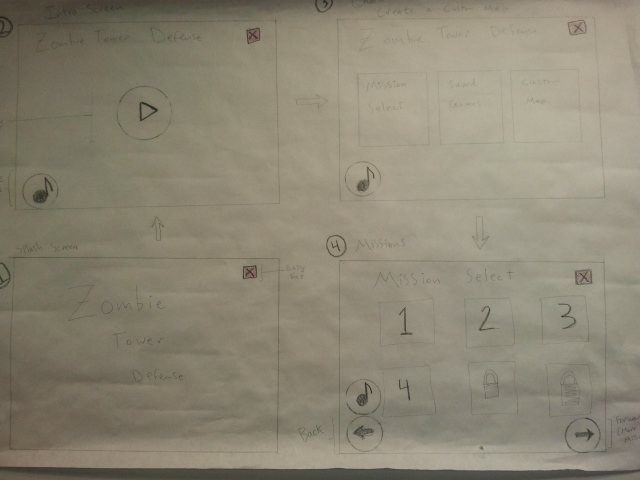 2
Intro Screen
Zombie Tower Defense
3
Create a Custom Map
Zombie Tower Defense
Mission
Select
Load
Custom
Map
1
Splash Screen
Zombie
Tower
Defense
4 Missions
Mission Select
1 2 3
4
Back